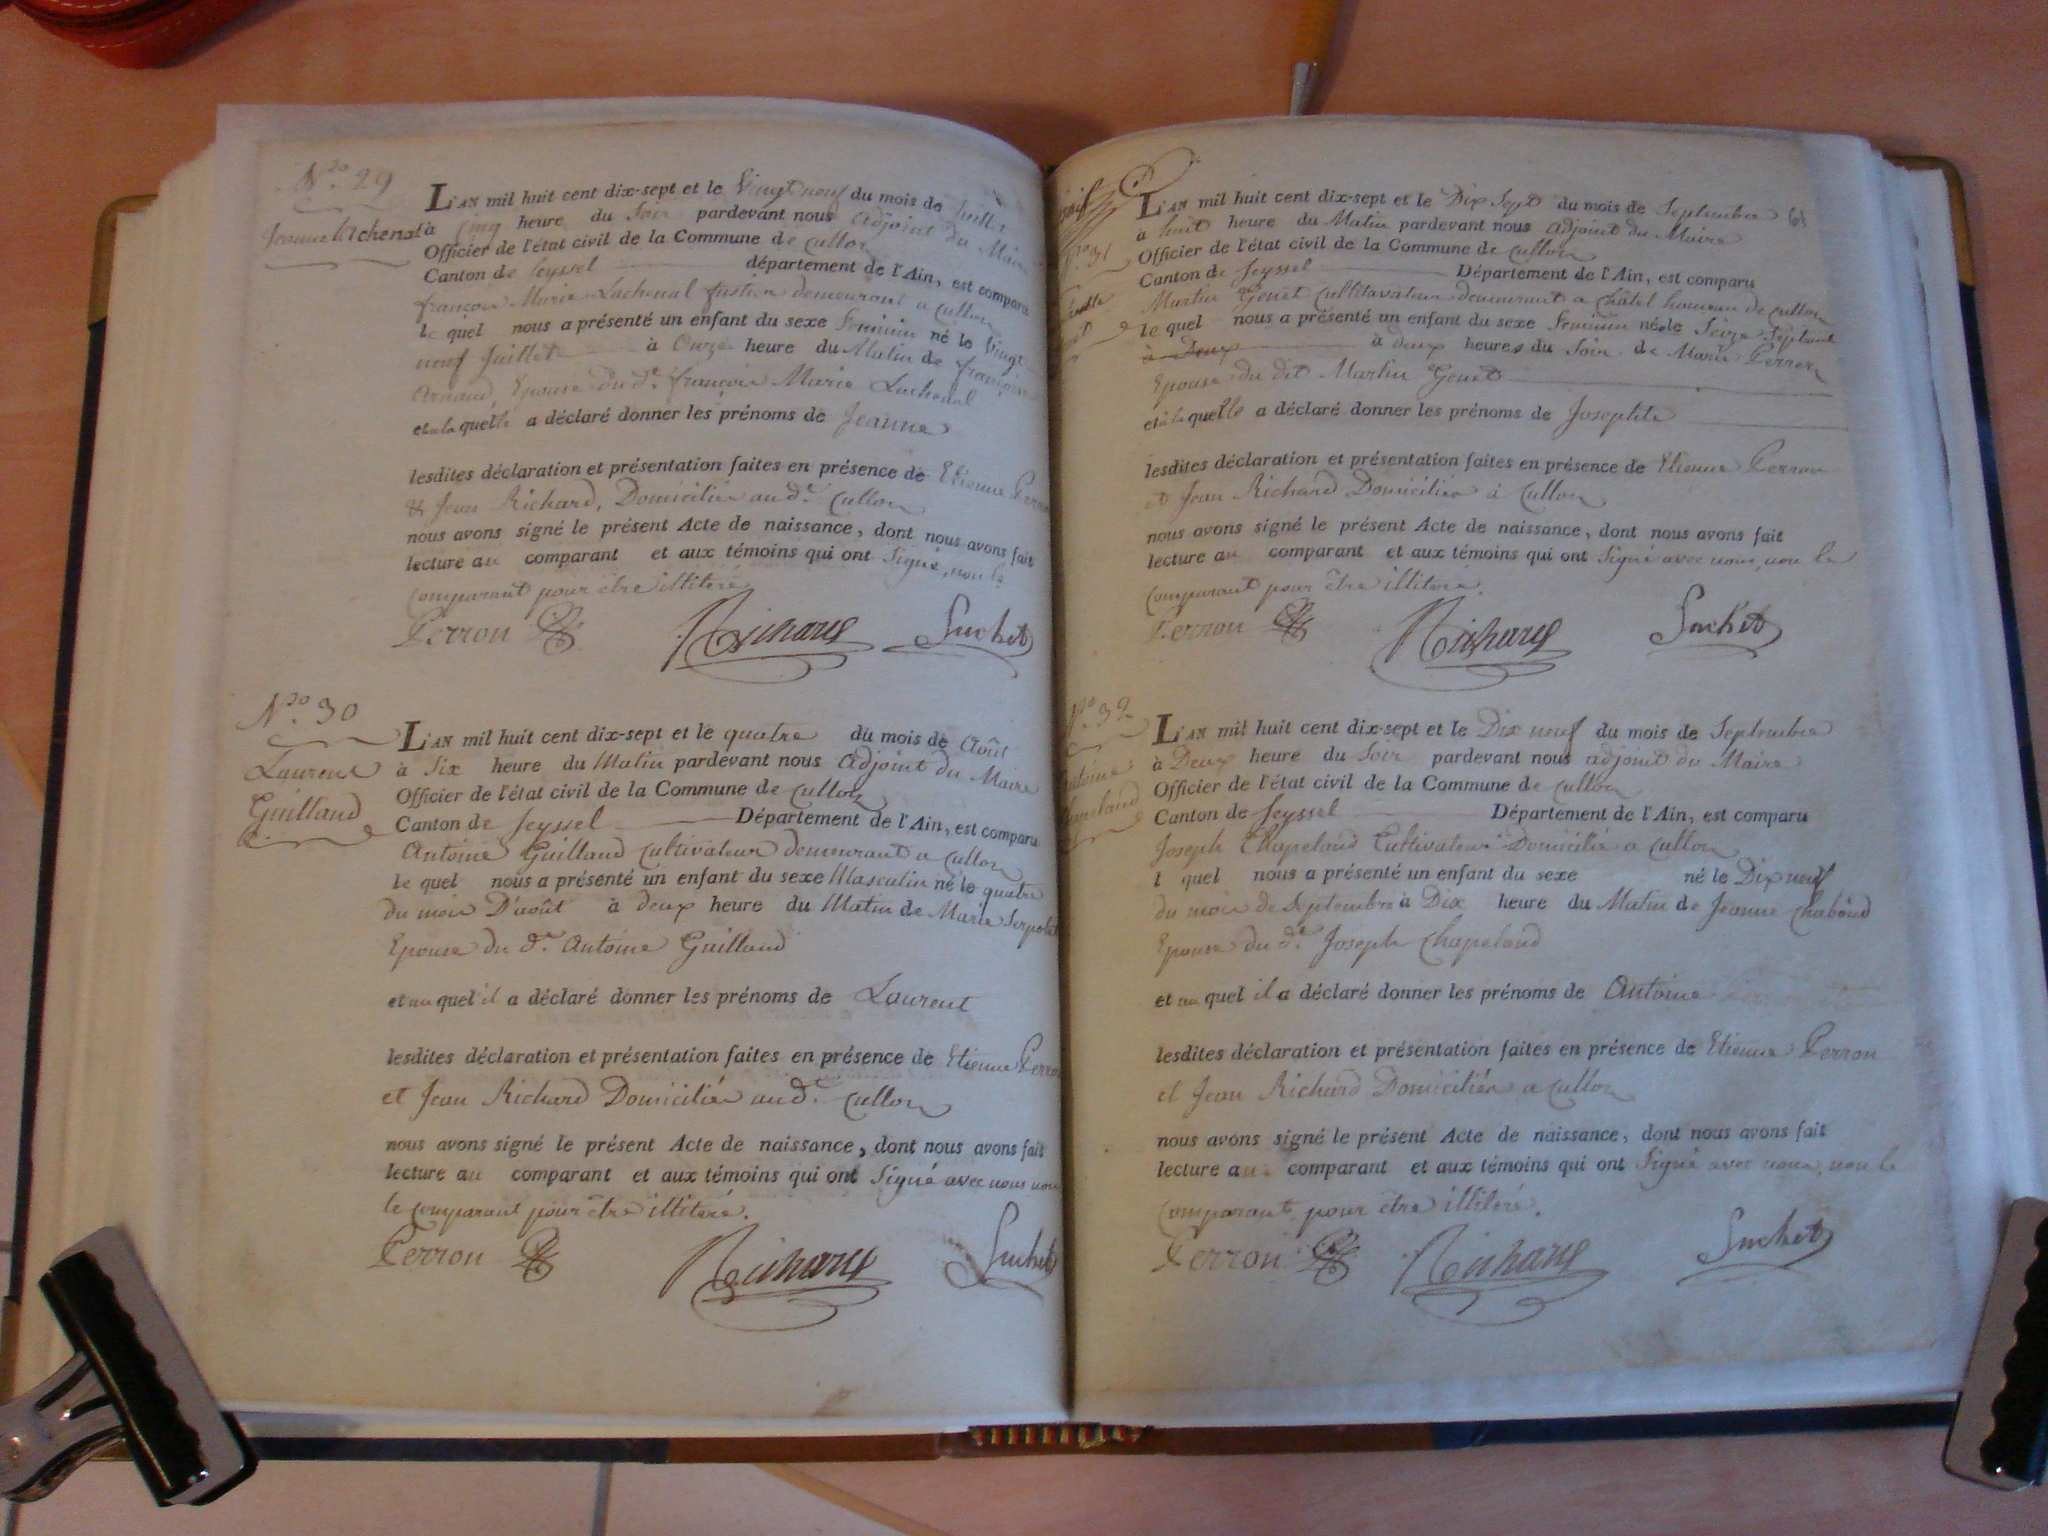 N.ro 29
Jeanne Lachenal
L'AN mil huit cent dix-sept et le Vingt neuf du mois de Juillet
à Cinq heure du Soir pardevant nous Adjoint du Maire
Officier de l'état civil de la Commune de Culloz
Canton de Seyssel département de l'Ain, est comparu
françois Marie Lachenal demeurant a Culloz
le quel nous a présenté un enfant du sexe Feminin né le Vingt
neuf Juillet à Onze heure du Matin de françoise
Arnaud, Epouse du d.t françois Marie Lachenal
et a la quelle a déclaré donner les prénoms de Jeanne
lesdites déclaration et présentation faites en présence de Etienne Perron
& Jean Richard, Domiciliés au d.t Culloz
nous avons signé le présent Acte de naissance, dont nous avons fait
lecture au comparant et aux témoins qui ont Signé, non le
comparant pour être illiteré
Perron Richard Suchet
N.ro 30
Laurent
Guilland
L'AN mil huit cent dix-sept et le quatre du mois de Août
à Six heure du Matin pardevant nous Adjoint du Maire
Officier de l'état civil de la Commune de Culloz
Canton de Seyssel Département de l'Ain, est comparu
Antoine Guilland Cultivateur demeurant a Culloz
le quel nous a présenté un enfant du sexe Masculin né le quatre
du mois D'août à deux heure du Matin de Marie Serpolet
Epouse du d.t Antoine Guilland
et au quel il a déclaré donner les prénoms de Laurent
lesdites déclaration et présentation faites en présence de Etienne Perron
et Jean Richard Domiciliés au d.t Culloz
nous avons signé le présent Acte de naissance, dont nous avons fait
lecture au comparant et aux témoins qui ont Signé avec nous non
le comparant pour être illiteré.
Perron Richard Suchet
N.ro 31
L'AN mil huit cent dix-sept et le Dix Sept du mois de Septembre
à huit heure du Matin pardevant nous Adjoint du Maire
Officier de l'état civil de la Commune de Culloz
Canton de Seyssel Département de l'Ain, est comparu
Martin Genet Cultivateur demeurant a Châtel hameau de Culloz
le quel nous a présenté un enfant du sexe Feminin né le Seize Septembre
à Deux à deux heures du Soir de Marie Perrer
Epouse du dit Martin Genet
et à la quelle a déclaré donner les prénoms de Josephte
lesdites déclaration et présentation faites en présence de Etienne Perron
et Jean Richard Domiciliés à Culloz
nous avons signé le présent Acte de naissance, dont nous avons fait
lecture au comparant et aux témoins qui ont Signé avec nous, non le
comparant pour être illiteré.
Perron Richard Suchet
N.ro 32
Antoine
Chapeland
L'AN mil huit cent dix-sept et le Dix neuf du mois de Septembre
à Deux heure du Soir pardevant nous adjoint du Maire
Officier de l'état civil de la Commune de Culloz
Canton de Seyssel Département de l'Ain, est comparu
Joseph Chapeland Cultivateur Domicilié a Culloz
l quel nous a présenté un enfant du sexe né le Dix neuf
du mois de Septembre à Dix heure du Matin de Jeanne Chaboud
Epouse du d.t Joseph Chapeland
et au quel il a déclaré donner les prénoms de Antoine
lesdites déclaration et présentation faites en présence de Etienne Perron
et Jean Richard Domiciliés a Culloz
nous avons signé le présent Acte de naissance, dont nous avons fait
lecture au comparant et aux témoins qui ont Signé avec nous, non le
comparant pour être illiteré.
Perron Richard Suchet